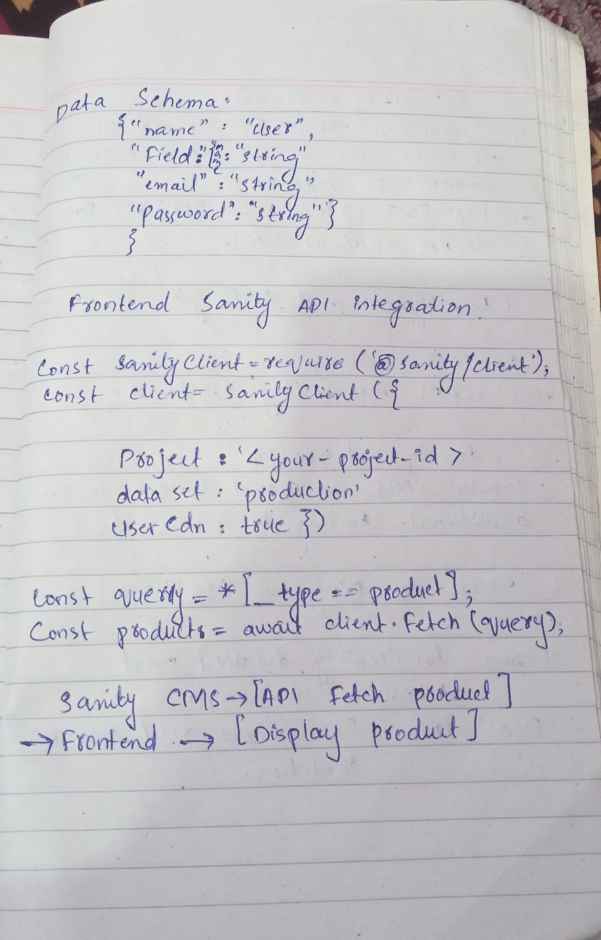 Data Schema:
{"name" : "User",
"Field": { : "string"
"email" : "string"
"password": "string"}
}
Frontend Sanity API integration:
Const SanityClient = require ('@sanity/client');
const client = SanityClient ({
Project : '<your-project-id>
data set : 'production'
User Cdn : true })
Const query = *[_type == product];
Const products = await client.fetch (query);
Sanity CMS → [API Fetch product]
→ Frontend → [Display product]